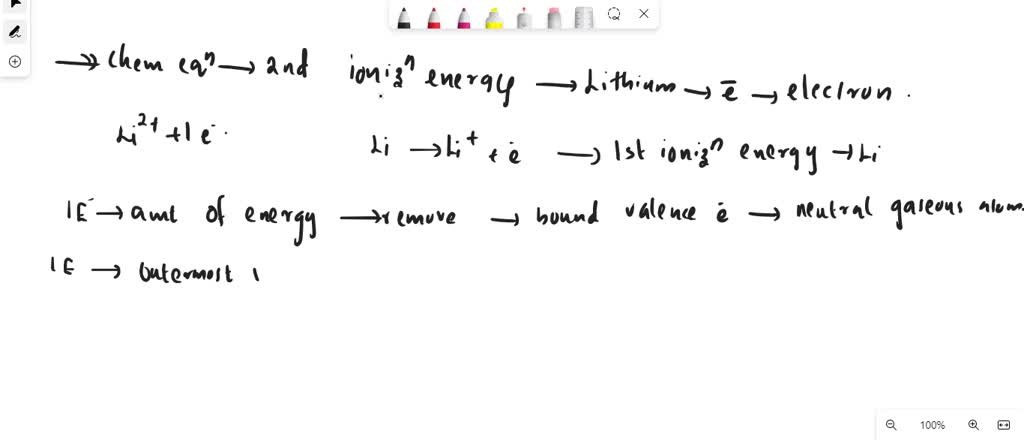 → Chem eqⁿ → 2nd ionizⁿ energy → Lithium → e̅ → electron.
Li²⁺ + 1 e⁻. Li → Li⁺ + e⁻ → 1st ionizⁿ energy → Li
IE → amt of energy → remove → bound valence e⁻ → neutral gaseous atom
IE → outermost
100%